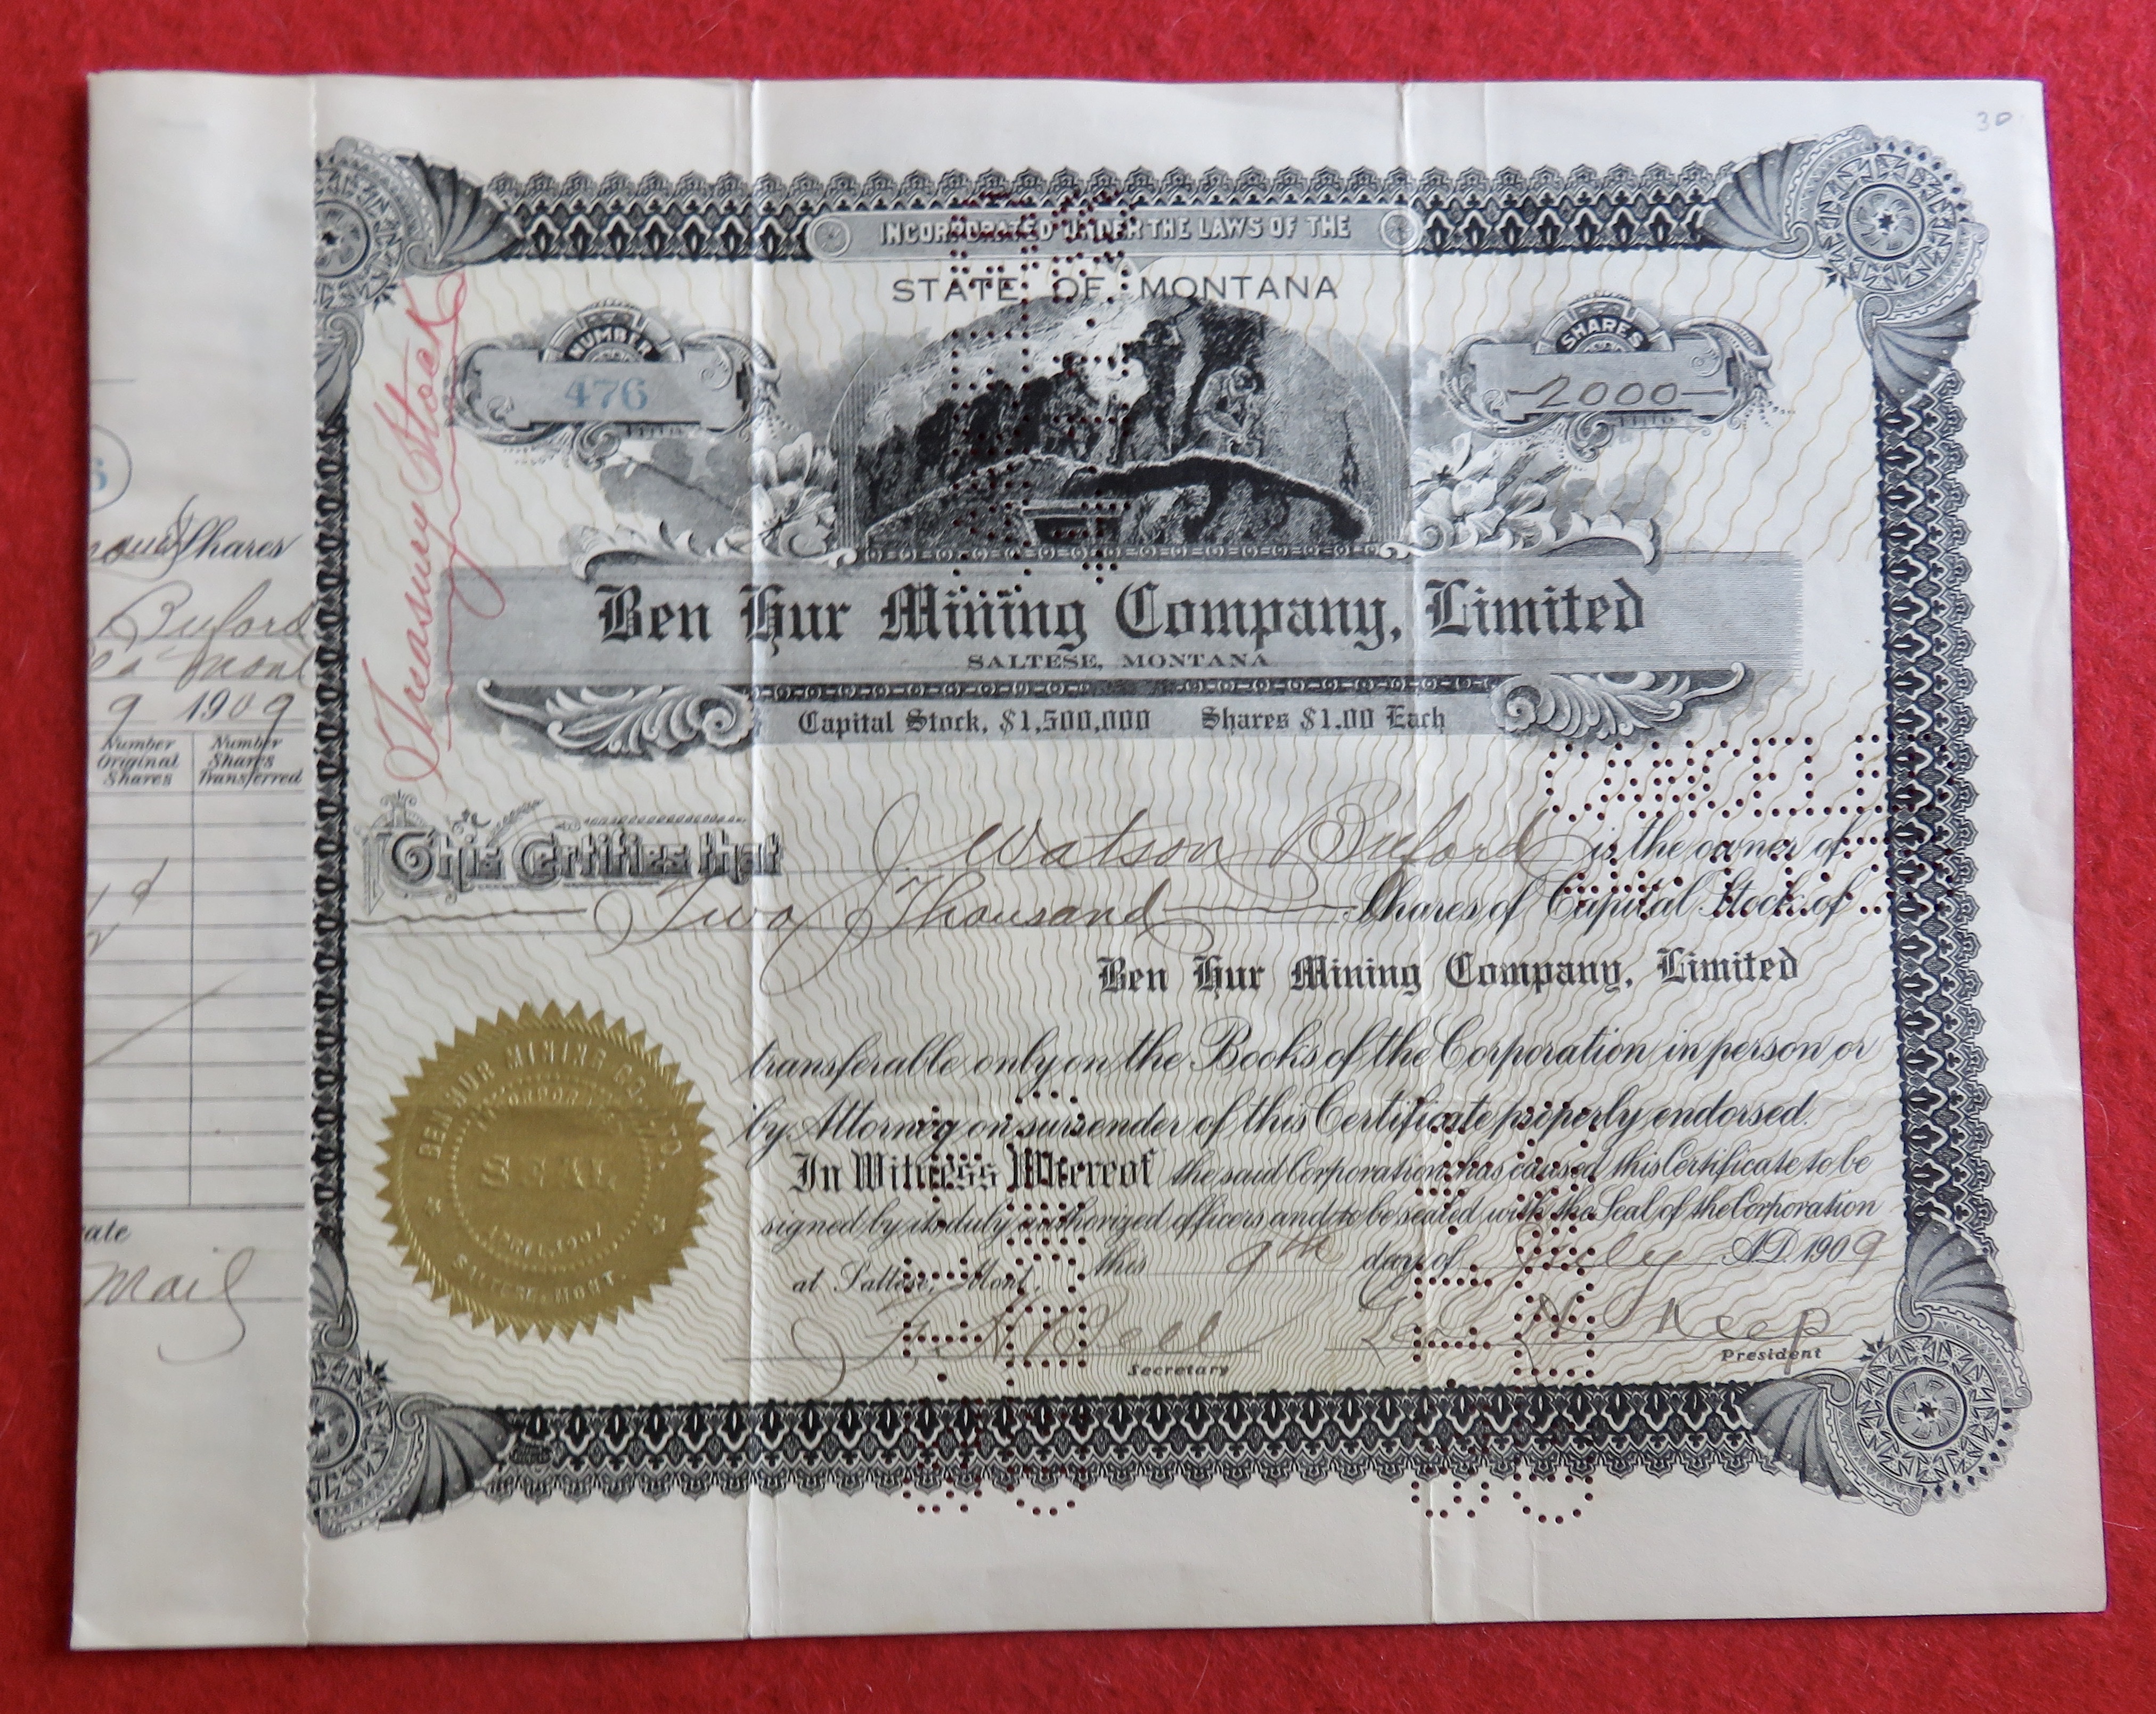 30
INCORPORATED UNDER THE LAWS OF THE
STATE OF MONTANA
NUMBER
476
SHARES
-2000-
Treasury Stock
Ben Hur Mining Company, Limited
SALTESE, MONTANA
Capital Stock, $1,500,000 Shares $1.00 Each
This Certifies that J Watson Buford is the owner of
Two Thousand Shares of Capital Stock of
Ben Hur Mining Company, Limited
transferable only on the Books of the Corporation in person or
by Attorney on surrender of this Certificate properly endorsed.
In Witness Whereof the said Corporation has caused this Certificate to be
signed by its duly authorized officers and to be sealed with the Seal of the Corporation
at Saltese, Mont. this 9th day of July A.D. 1909
Secretary
President
BEN HUR MINING CO. LTD.
INCORPORATED
SEAL
APRIL 1907
SALTESE, MONT.
CANCELE
Shares
Buford
Mont
9 1909
Number Original Shares
Number Shares Transferred
ate
Mail